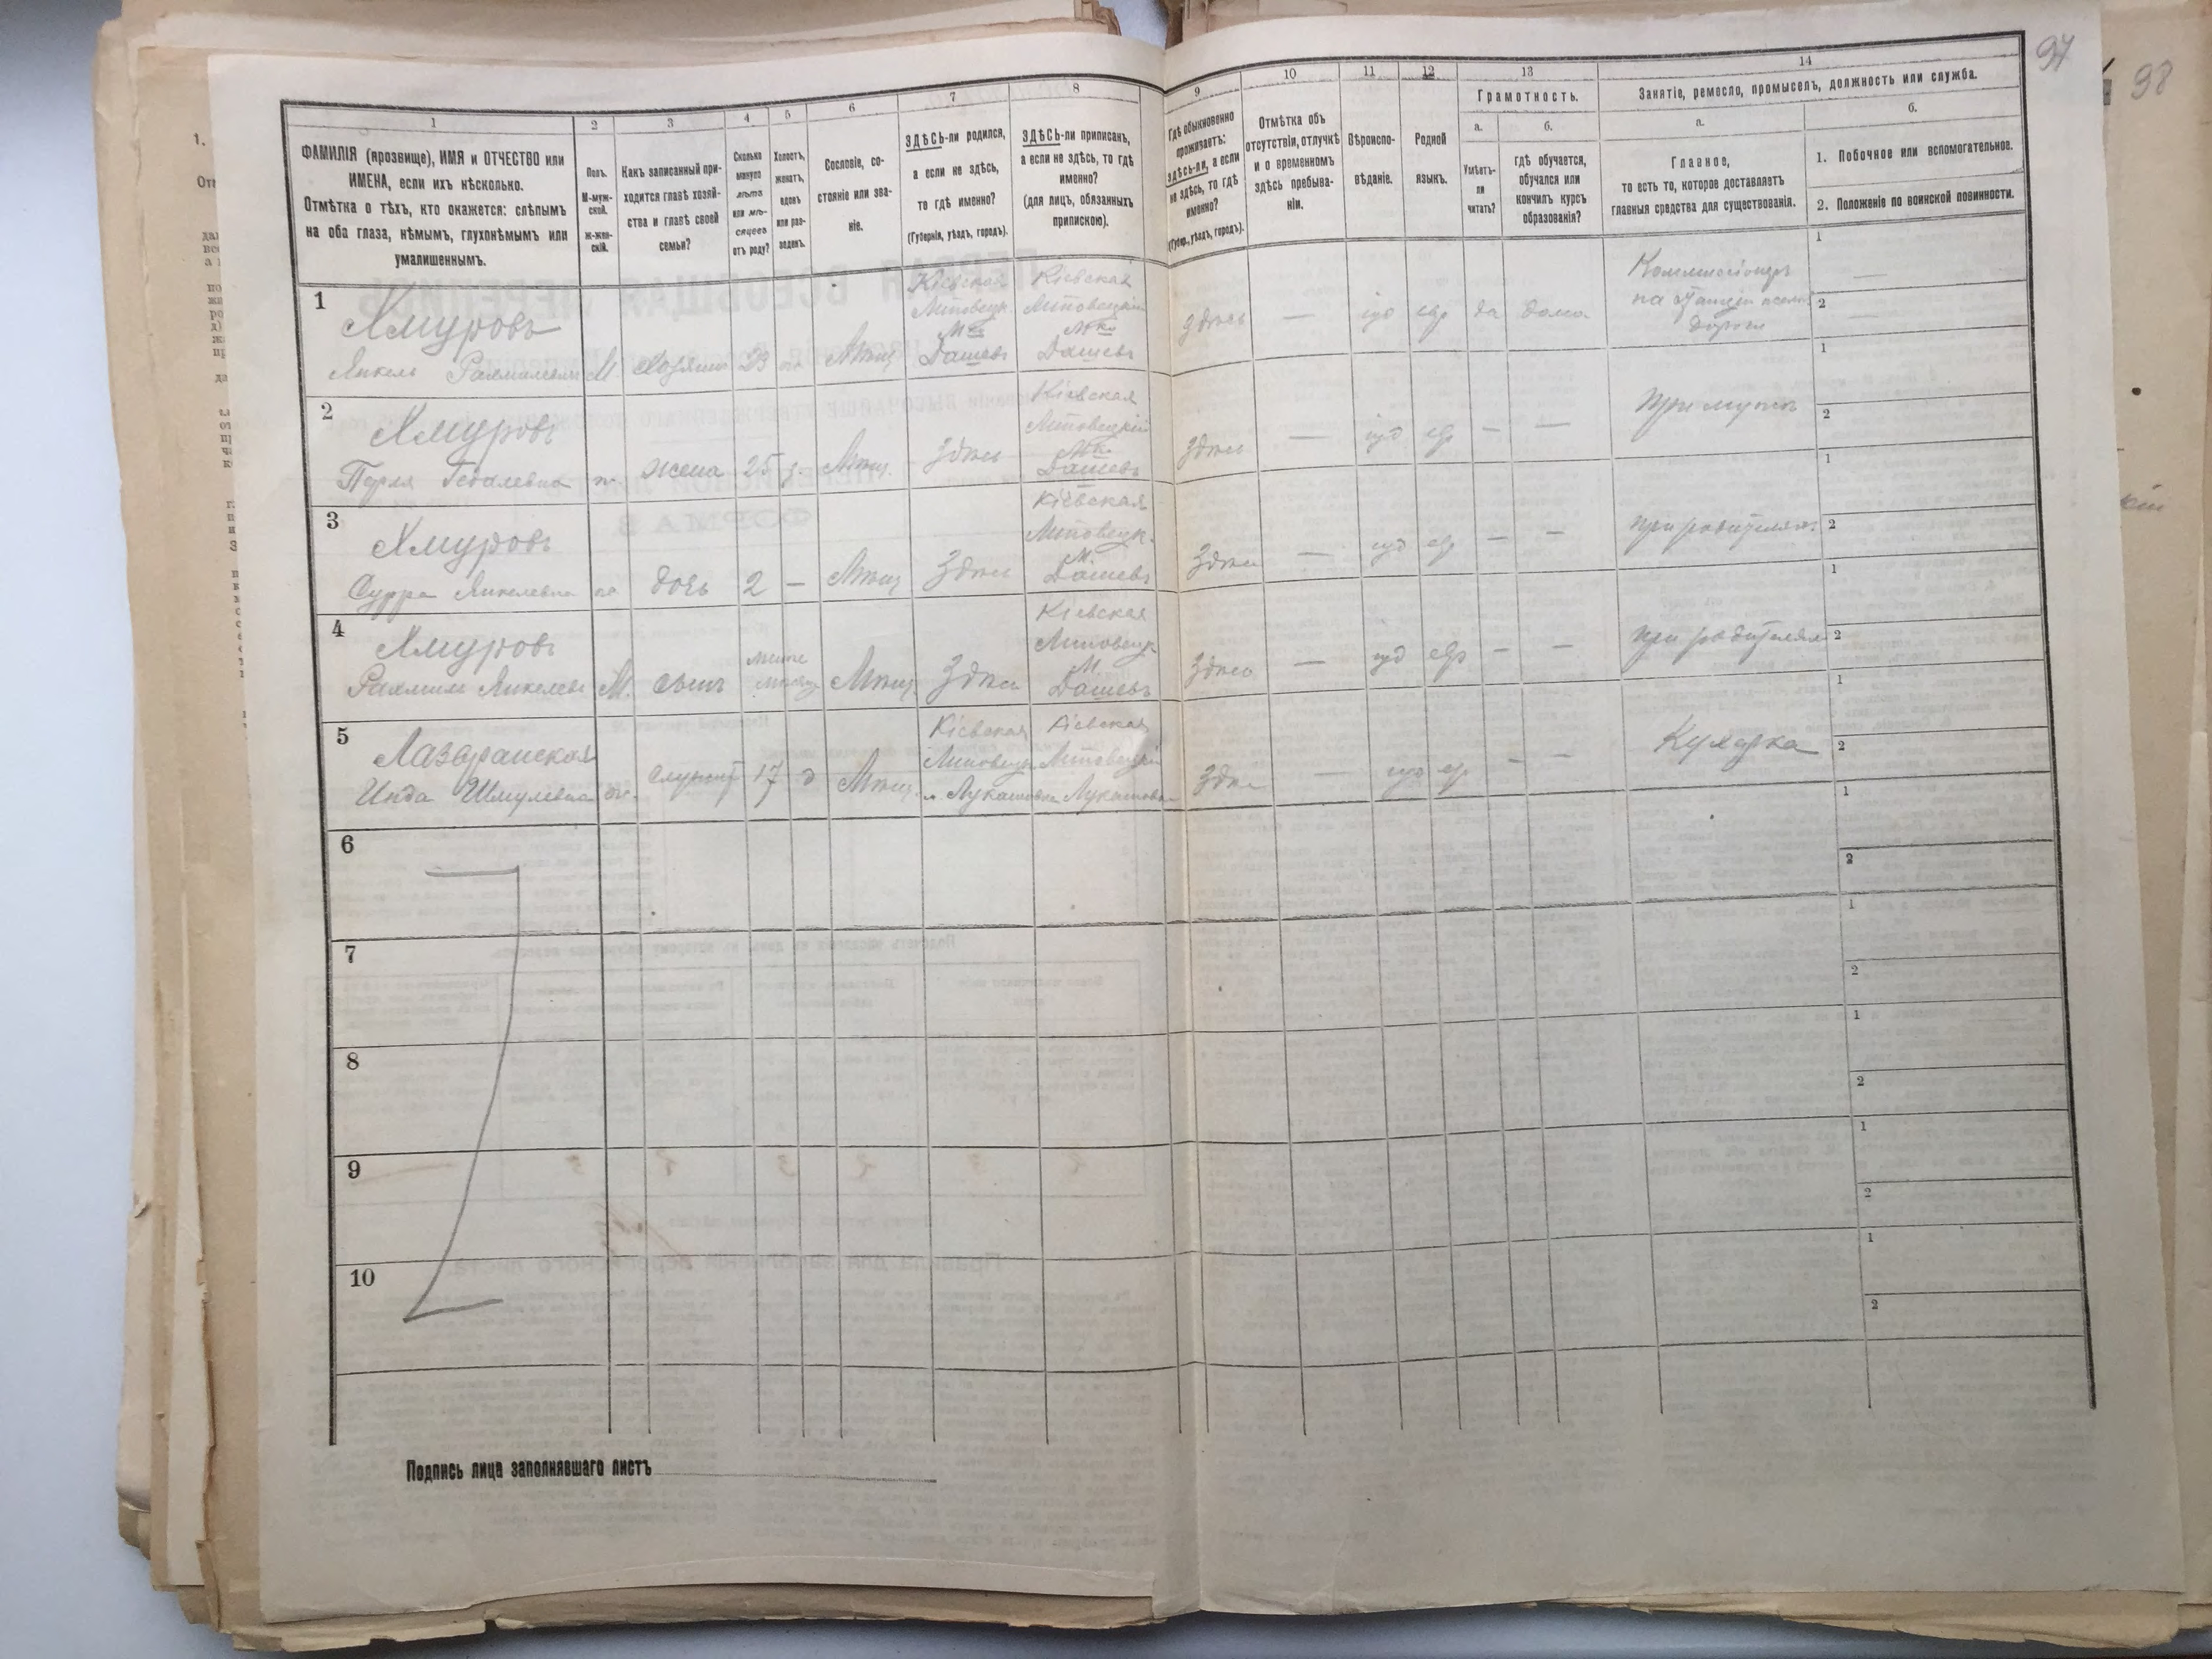 97
98
1
2
3
4
5
6
7
8
9
10
11
12
13
14
ФАМИЛІЯ (прозвище), ИМЯ и ОТЧЕСТВО или
ИМЕНА, если ихъ нѣсколько.
Отмѣтка о тѣхъ, кто окажется: слѣпымъ
на оба глаза, нѣмымъ, глухонѣмымъ или
умалишеннымъ.
Полъ.
М-муж-
ской.
ж-жен-
скій.
Какъ записанный при-
ходится главѣ хозяй-
ства и главѣ своей
семьи?
Сколько
минуло
лѣтъ
или мѣ-
сяцевъ
отъ роду?
Холостъ,
женатъ,
вдовъ
или раз-
веденъ.
Сословіе, со-
стояніе или зва-
ніе.
ЗДѢСЬ-ли родился,
а если не здѣсь,
то гдѣ именно?
(Губернія, уѣздъ, городъ).
ЗДѢСЬ-ли приписанъ,
а если не здѣсь, то гдѣ
именно?
(для лицъ, обязанныхъ
припискою).
Гдѣ обыкновенно
проживаетъ:
здѣсь-ли, а если
не здѣсь, то гдѣ
именно?
(Губер., уѣздъ, городъ).
Отмѣтка объ
отсутствіи, отлучкѣ
и о временномъ
здѣсь пребыва-
ніи.
Вѣроиспо-
вѣданіе.
Родной
языкъ.
Грамотность.
а.
Умѣетъ-
ли
читать?
б.
гдѣ обучается,
обучался или
кончилъ курсъ
образованія?
Занятіе, ремесло, промыселъ, должность или служба.
а.
Главное,
то есть то, которое доставляетъ
главныя средства для существованія.
б.
1. Побочное или вспомогательное.
2. Положеніе по воинской повинности.
1
Хмуровъ
Янкель Рахмилевичъ
М.
Хозяинъ
23
Мѣщ
Кіевская
Липовецк.
Мко
Дашевъ
Кіевская
Липовецкій
Мко
Дашевъ
здѣсь
—
іуд
евр
да
дома
Коммисіонеръ
дороги
1
—
2
—
2
Хмуровъ
Перля
ж.
жена
25
з.
Мѣщ.
Здѣсь
Кіевская
Липовецкій
Мко
Дашевъ
Здѣсь
—
іуд
евр
—
—
при мужѣ
1
2
3
Хмуровъ
Сурра Янкелевна
ж
дочь
2
—
Мѣщ
Здѣсь
Кіевская
Липовецк.
М.
Дашевъ
Здѣсь
—
іуд
евр
—
—
при родителяхъ
1
2
4
Хмуровъ
Рахмиль Янкелевъ
М.
сынъ
Мѣщ.
Здѣсь
Кіевская
Липовецк
М.
Дашевъ
Здѣсь
—
іуд
евр
—
—
при родителяхъ
1
2
5
Инда Шмулевна
17
д
Мѣщ.
Кіевская
Липовецк
м. Лукашовка
Кіевская
Липовецкій
Лукашовка
Здѣсь
—
іуд
евр
—
—
Кухарка
1
2
6
1
2
7
1
2
8
1
2
9
1
2
10
1
2
Подпись лица заполнявшаго листъ